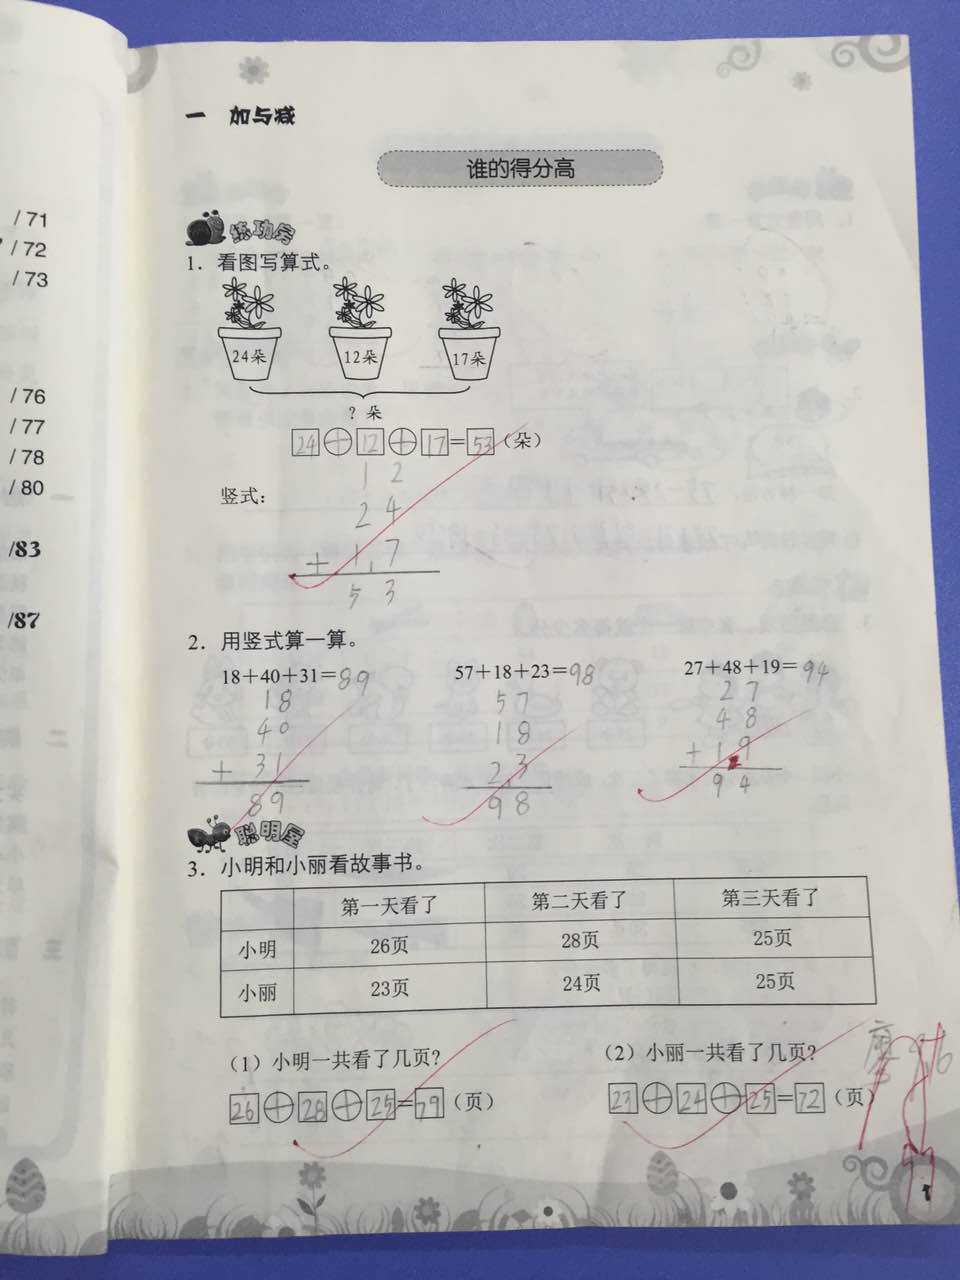 / 71
/ 72
/ 73
/ 76
/ 77
/ 78
/ 80
/83
/87
一 加与减
谁的得分高
练功房
1. 看图写算式。
24朵 12朵 17朵
? 朵
24+12+17=53(朵)
竖式:
1 2
2 4
+ 1 7
5 3
2. 用竖式算一算。
18+40+31=89 57+18+23=98 27+48+19=94
18 57 27
40 18 48
+ 31 23 + 19
89 98 94
聪明屋
3. 小明和小丽看故事书。
第一天看了 第二天看了 第三天看了
小明 26页 28页 25页
小丽 23页 24页 25页
(1) 小明一共看了几页? (2) 小丽一共看了几页?
26+28+25=79(页) 23+24+25=72(页)
1